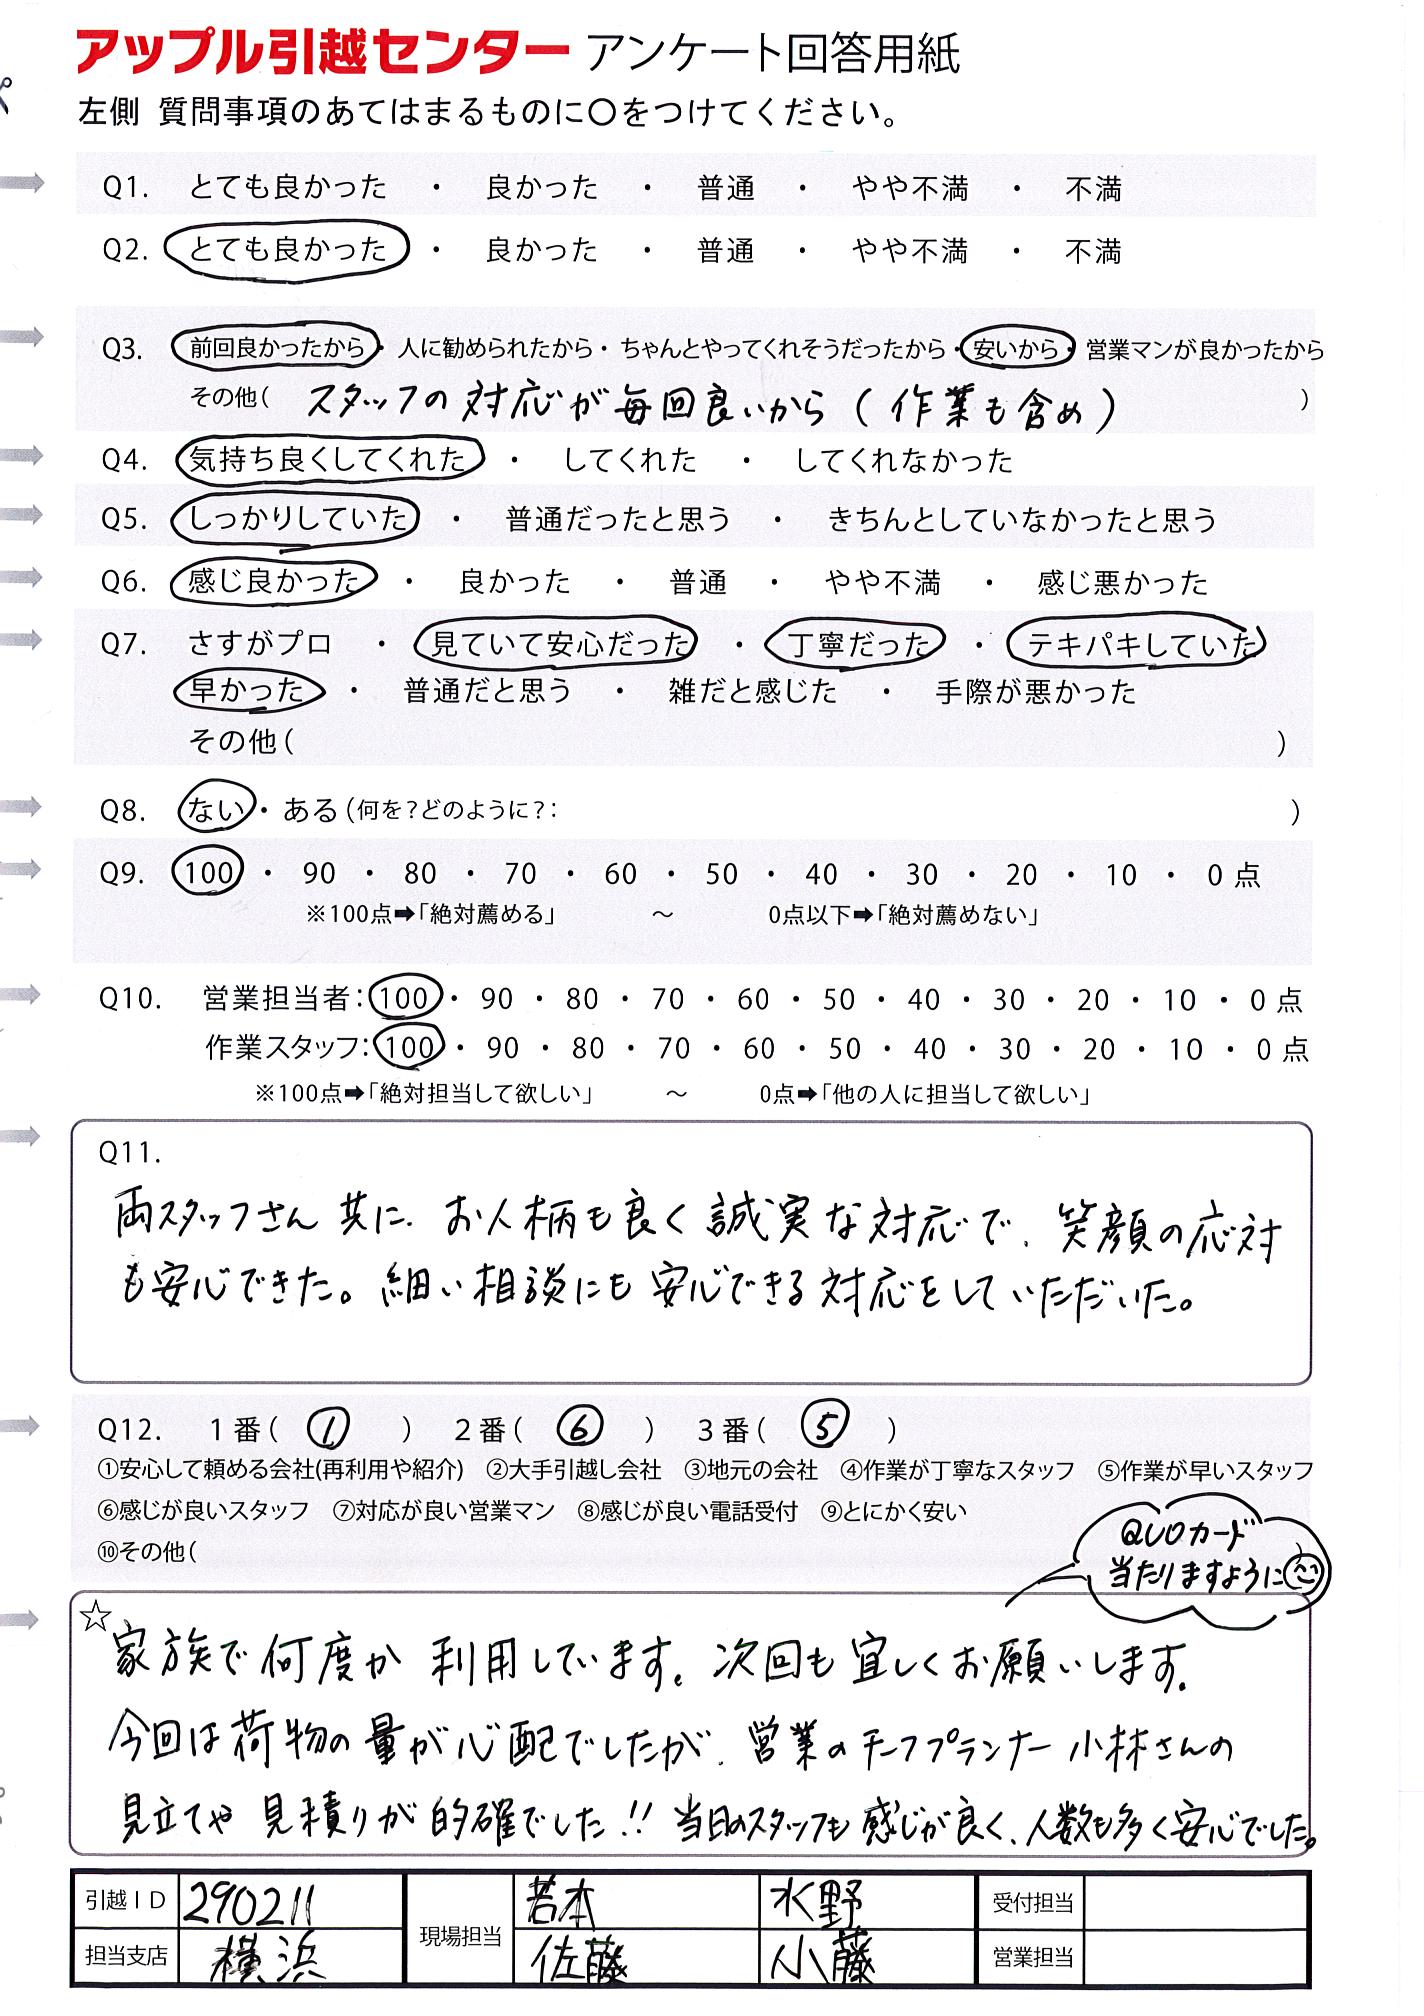 アップル引越センター アンケート回答用紙
左側 質問事項のあてはまるものに〇をつけてください。
Q1. とても良かった ・ 良かった ・ 普通 ・ やや不満 ・ 不満
Q2. とても良かった ・ 良かった ・ 普通 ・ やや不満 ・ 不満
Q3. 前回良かったから・人に勧められたから・ちゃんとやってくれそうだったから・安いから・営業マンが良かったから
その他( スタッフの対応が毎回良いから(作業も含め) )
Q4. 気持ち良くしてくれた ・ してくれた ・ してくれなかった
Q5. しっかりしていた ・ 普通だったと思う ・ きちんとしていなかったと思う
Q6. 感じ良かった ・ 良かった ・ 普通 ・ やや不満 ・ 感じ悪かった
Q7. さすがプロ ・ 見ていて安心だった ・ 丁寧だった ・ テキパキしていた
早かった ・ 普通だと思う ・ 雑だと感じた ・ 手際が悪かった
その他( )
Q8. ない・ある(何を?どのように?: )
Q9. 100 ・ 90 ・ 80 ・ 70 ・ 60 ・ 50 ・ 40 ・ 30 ・ 20 ・ 10 ・ 0点
※100点➡「絶対薦める」 ～ 0点以下➡「絶対薦めない」
Q10. 営業担当者:100・90・80・70・60・50・40・30・20・10・0点
作業スタッフ:100・90・80・70・60・50・40・30・20・10・0点
※100点➡「絶対担当して欲しい」 ～ 0点➡「他の人に担当して欲しい」
Q11.
両スタッフさん共に、お人柄も良く誠実な対応で、笑顔の応対
も安心できた。細い相談にも安心できる対応をしていただいた。
Q12. 1番( ① ) 2番( ⑥ ) 3番( ⑤ )
①安心して頼める会社(再利用や紹介) ②大手引越し会社 ③地元の会社 ④作業が丁寧なスタッフ ⑤作業が早いスタッフ
⑥感じが良いスタッフ ⑦対応が良い営業マン ⑧感じが良い電話受付 ⑨とにかく安い
⑩その他(
QUOカード
当たりますように
☆
家族で何度か利用しています。次回も宜しくお願いします。
今回は荷物の量が心配でしたが、営業のチーフプランナー小林さんの
見立てや見積りが的確でした!! 当日のスタッフも感じが良く、人数も多く安心でした。
引越ID 290211 現場担当 若本 水野 受付担当
担当支店 横浜 佐藤 小藤 営業担当